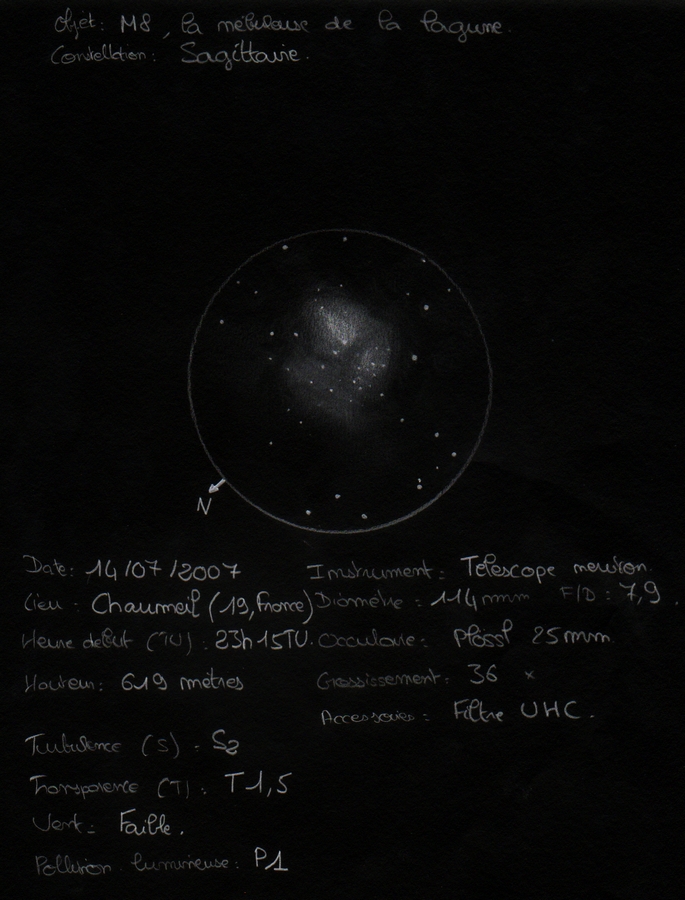 Objet: M8, la nébuleuse de la lagune.
Constellation: Sagittaire.
N
Date: 14/07/2007
Lieu: Chaumeil (19, France)
Heure début (TU): 23h15TU.
Hauteur: 619 mètres
Turbulence (S): S2
Transparence (T): T1,5
Vent: Faible.
Pollution lumineuse: P1
Instrument: Télescope newton.
Diamètre: 114mm F/D: 7,9.
Occulaire: Plössl 25mm
Grossissement: 36 x
Accessoires: Filtre UHC.